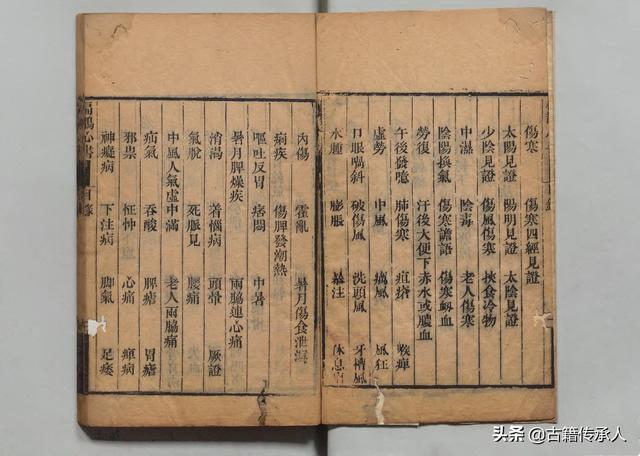 傷寒　傷寒四經見證
太陽見證　陽明見證　太陰見證
少陰見證　傷風傷寒　挾食冷物
中濕　陰毒　老人傷寒
陰陽換氣　傷寒譫語　傷寒衂血
勞復　汗後大便下赤水或膿血
午後發噫　肺傷寒　疽瘡　喉痺
虛勞　中風　癘風　風狂
口眼喎斜　破傷風　洗頭風　牙槽風
水腫　膨脹　暴注　休息
內傷　霍亂　暑月傷食泄瀉
痢疾　傷脾發潮熱
嘔吐反胃　痞悶　中暑
暑月脾燥疾　兩脇連心痛
消渴　著惱病　頭暈　厥證
氣脫　死脈見　腰痛
中風人氣虛中滿　老人兩脇痛
疝氣　吞酸　脾瘧　胃瘧
邪祟　怔忡　心痛　痺病
神癡病　下注病　脚氣　足痿
扁鵲心書　目錄
头条 @古籍传承人